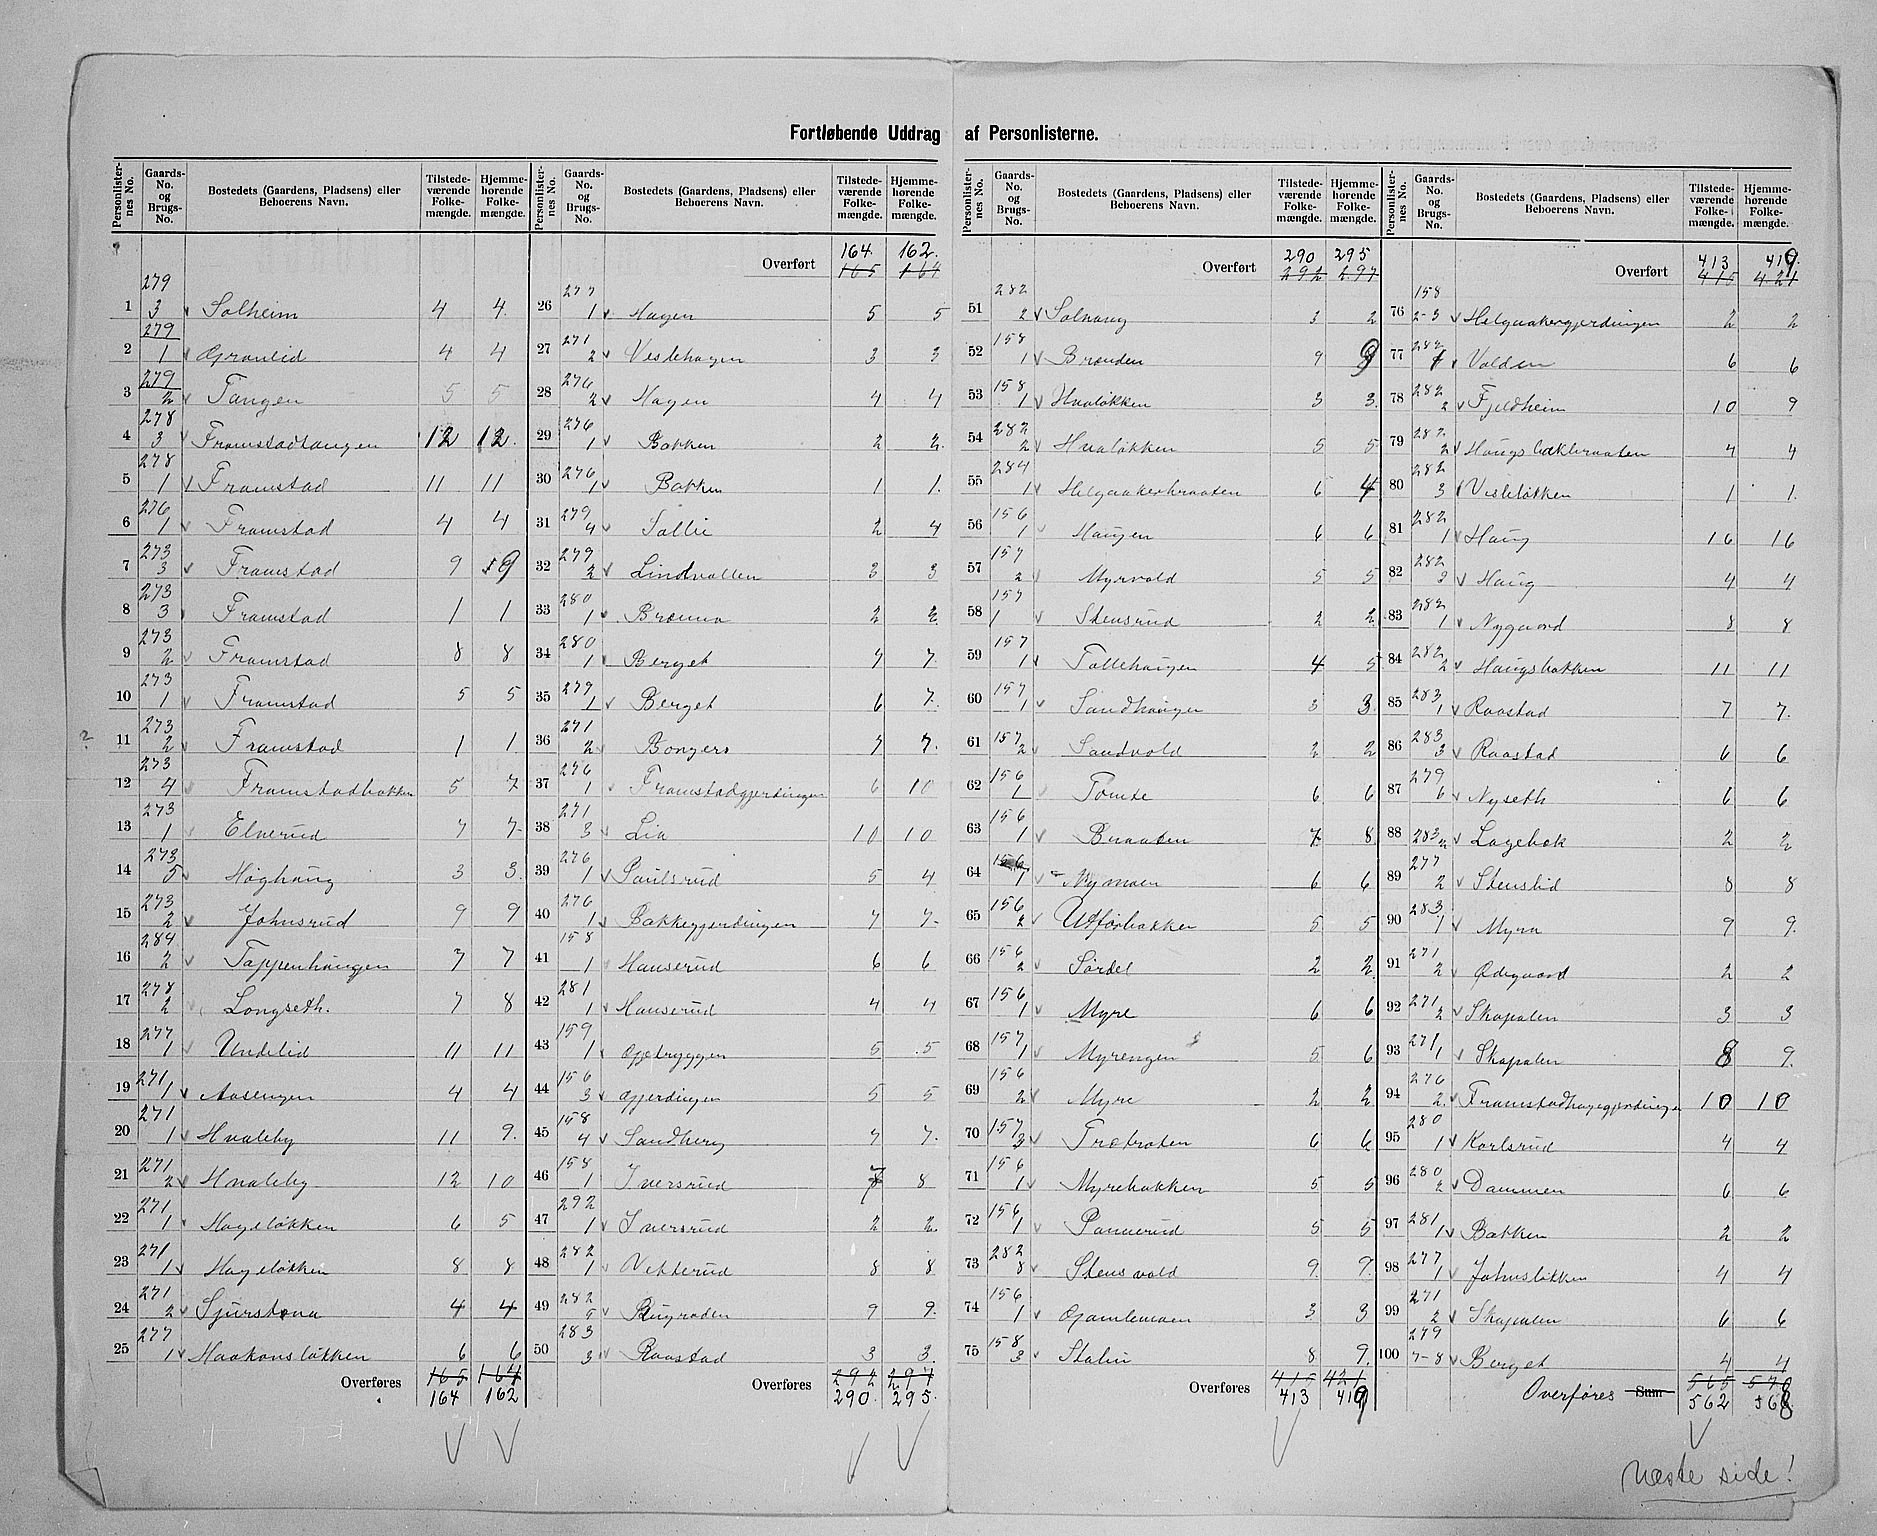 Fortløbende Uddrag af Personlisterne.
Personlister-nes No. | Gaards-No. og Brugs-No. | Bostedets (Gaardens, Pladsens) eller Beboerens Navn. | Tilstede-værende Folke-mængde. | Hjemme-hørende Folke-mængde.
1 279 3 Solheim 4 4
2 279 1 Grønlid 4 4
3 279 2 Tangen 5 5
4 278 3 Framstadtangen 12 12
5 278 1 Framstad 11 11
6 276 1 Framstad 4 4
7 273 3 Framstad 9 9
8 273 3 Framstad 1 1
9 273 2 Framstad 8 8
10 273 1 Framstad 5 5
11 273 2 Framstad 1 1
12 273 4 Framstadbakken 5 7
13 273 1 Elverud 7 7
14 273 5 Høghaug 3 3
15 273 2 Johnsrud 9 9
16 284 2 Tappenhaugen 7 7
17 278 2 Longseth. 7 8
18 277 1 Undelid 11 11
19 271 1 Aasengen 4 4
20 271 1 Hvaleby 11 9
21 271 2 Hvaleby 12 10
22 271 1 Hageløkken 6 5
23 271 1 Hageløkken 8 8
24 271 2 Sjurstøna 4 4
25 277 1 Haakonsløkken 6 6
Overføres 165 164
164 162
Personlister-nes No. | Gaards-No. og Brugs-No. | Bostedets (Gaardens, Pladsens) eller Beboerens Navn. | Tilstede-værende Folke-mængde. | Hjemme-hørende Folke-mængde.
164 162
Overført 165 164
26 277 1 Hagen 5 5
27 271 2 Veslehagen 3 3
28 276 2 Hagen 4 4
29 276 1 Bakken 2 2
30 276 1 Bakken 1 1
31 279 4 Sollie 2 4
32 279 2 Lindvollen 3 3
33 280 1 Brænna 2 2
34 280 1 Berget 7 7
35 279 1 Berget 6 7
36 271 2 Bongers 7 7
37 276 1 Framstadgjerdingen 6 10
38 271 3 Lia 10 10
39 276 1 Paulsrud 5 4
40 276 1 Bakkegjerdingen 7 7
41 158 1 Hanserud 6 6
42 281 1 Hanserud 4 4
43 159 1 Opbryggen 5 5
44 156 3 Gjerdingen 5 5
45 158 4 Sandberg 7 7
46 158 1 Iversrud 7 8
47 292 1 Iversrud 2 2
48 282 1 Vetterud 8 8
49 282 5 Rugraden 9 9
50 283 3 Raastad 3 3
Overføres 292 297
290 295
Personlister-nes No. | Gaards-No. og Brugs-No. | Bostedets (Gaardens, Pladsens) eller Beboerens Navn. | Tilstede-værende Folke-mængde. | Hjemme-hørende Folke-mængde.
290 295
Overført 292 297
51 282 2 Solhaug 3 2
52 158 1 Brænden 9 9
53 158 1 Hvaløkken 3 3
54 282 2 Hvaløkken 5 5
55 284 1 Helgaakerbraaten 6 4
56 156 1 Haugen 6 6
57 157 2 Myrvold 5 5
58 157 1 Stensrud 2 2
59 157 1 Tollehaugen 4 5
60 157 1 Sandhaugen 3 3
61 157 2 Sandvold 2 2
62 156 1 Tomte 6 6
63 156 1 Braaten 7 8
64 156 1 Nymoen 6 6
65 156 2 Utforbakken 5 5
66 156 2 Sørdel 2 2
67 156 1 Myre 6 6
68 157 1 Myrengen 5 6
69 156 2 Myre 2 2
70 157 3 Trøbraten 6 6
71 156 1 Myrebakken 5 5
72 156 1 Pannerud 5 5
73 282 8 Stensvold 9 9
74 156 1 Gamlemoen 3 3
75 158 3 Stalin 8 9
Overføres 415 421
413 419
Personlister-nes No. | Gaards-No. og Brugs-No. | Bostedets (Gaardens, Pladsens) eller Beboerens Navn. | Tilstede-værende Folke-mængde. | Hjemme-hørende Folke-mængde.
413 419
Overført 415 421
76 158 2-3 Helgaakergjerdingen 2 2
77 282 1 Volden 6 6
78 282 2 Fjeldheim 10 9
79 282 2 Haugsbakbraaten 4 4
80 282 3 Vesleløkken 1 1
81 282 1 Haug 16 16
82 282 3 Haug 4 4
83 282 1 Nygaard 8 8
84 282 2 Haugsbakken 11 11
85 283 1 Raastad 7 7
86 283 3 Raastad 6 6
87 279 6 Nyseth 6 6
88 283 2 Lagebæk 2 2
89 277 2 Stenslid 8 8
90 283 1 Myra 9 9
91 271 2 Ødegaard 2 2
92 271 2 Skapalen 3 3
93 271 1 Skapalen 8 9
94 276 2 Framstadhagegjerdingen 10 10
95 280 1 Karlsrud 4 4
96 280 2 Dammen 6 6
97 281 1 Bakken 2 2
98 277 1 Johnsløkken 4 4
99 271 2 Skapalen 6 6
100 279 7-8 Berget 4 4
Overføres Sum 565 570
562 568
Næste side!